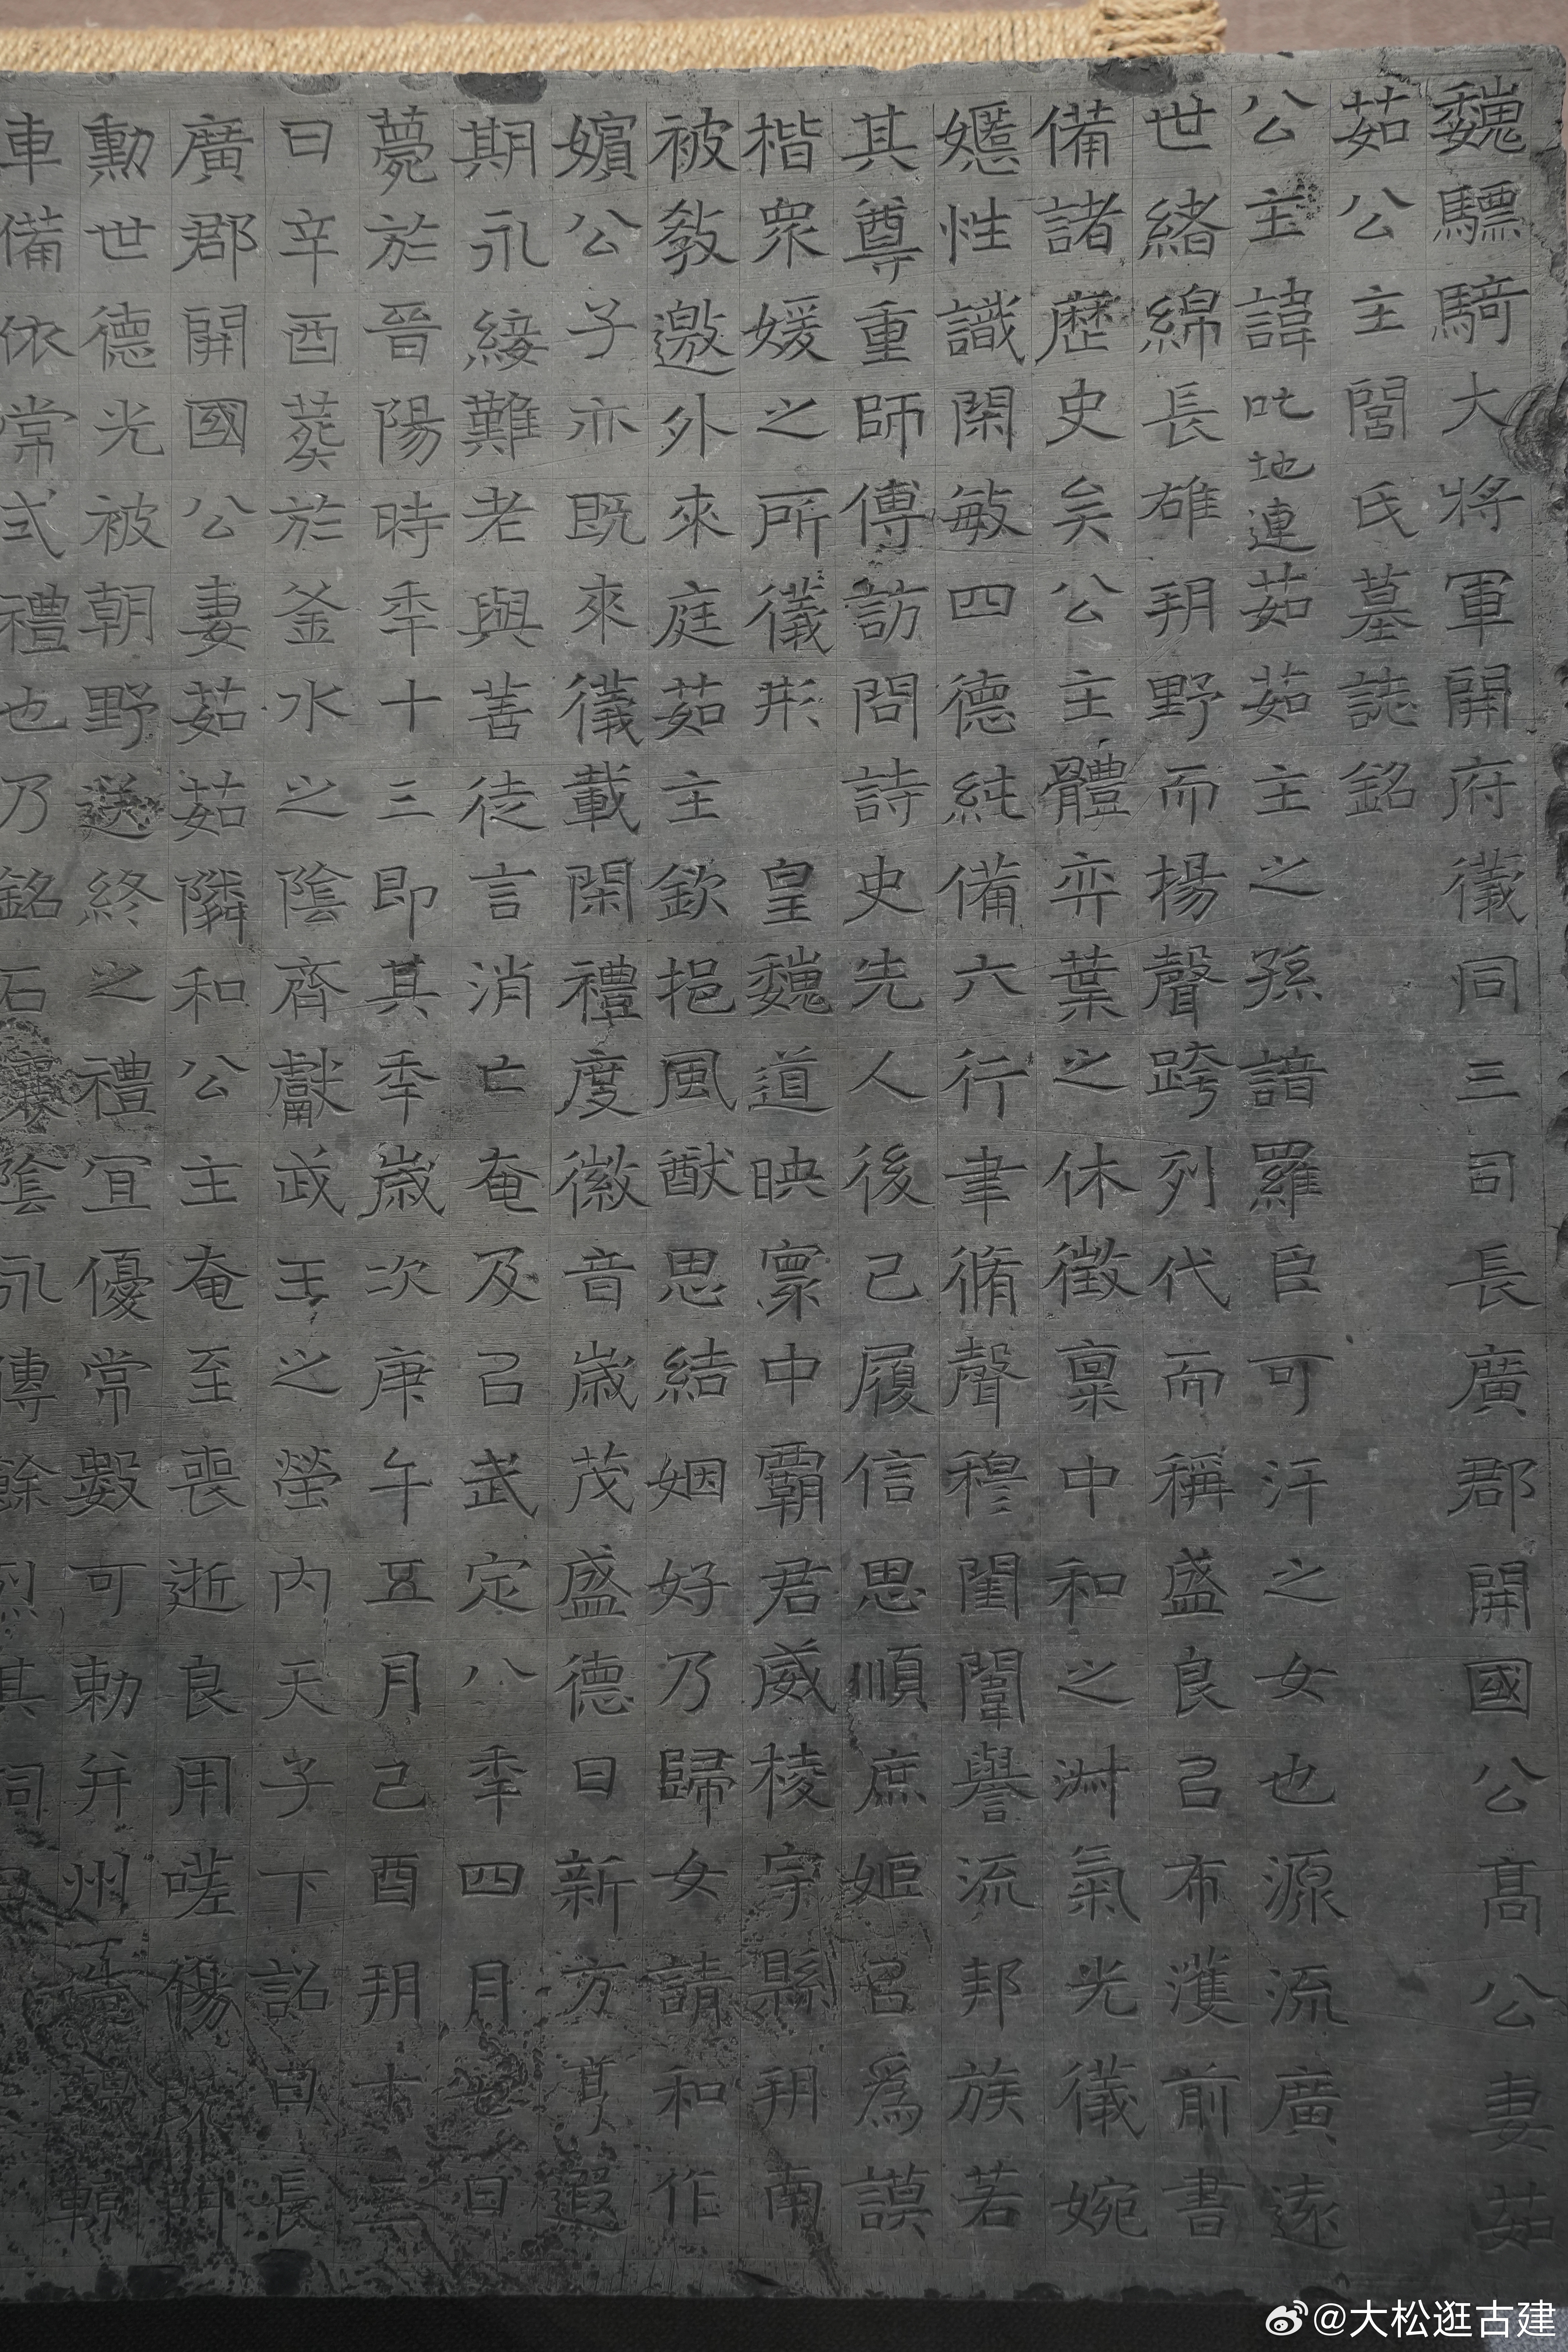 魏驃騎大將軍開府儀同三司長廣郡開國公髙公妻茹
茹公主閭氏墓誌銘
公主諱叱地連茹茹主之孫諳羅臣可汗之女也源流廣遠
世緒綿長雄朔野而揚聲跨列代而稱盛良㠯布濩前書
備諸歷史矣公主體弈葉之休徵稟中和之淑氣光儀婉
嬺性識閑敏四德純備六行聿脩聲穆閨闈譽流邦族若
其尊重師傅訪問詩史先人後己履信思順庶姬㠯爲謨
楷衆媛之所儀形 皇魏道映寰中霸君威棱宇縣朔南
被敎邀外來庭茹茹主欽挹風猷思結姻好乃歸女請和作
嬪公子亦既來儀載閑禮度徽音歲茂盛德日新方髙遐
期永綏難老與善徒言消亡奄及㠯武定八秊四月七日
薨於晉陽時秊十三即其秊歲次庚午五月己酉朔十三
日辛酉葬於釜水之陰齊獻武王之塋內天子下詔曰長
廣郡開國公妻茹茹隣和公主奄至喪逝良用嗟傷既門
勳世德光被朝野送終之禮宜優常數可敕并州造輼輬
車備依常式禮也乃銘石壤陰永傳餘烈其詞曰